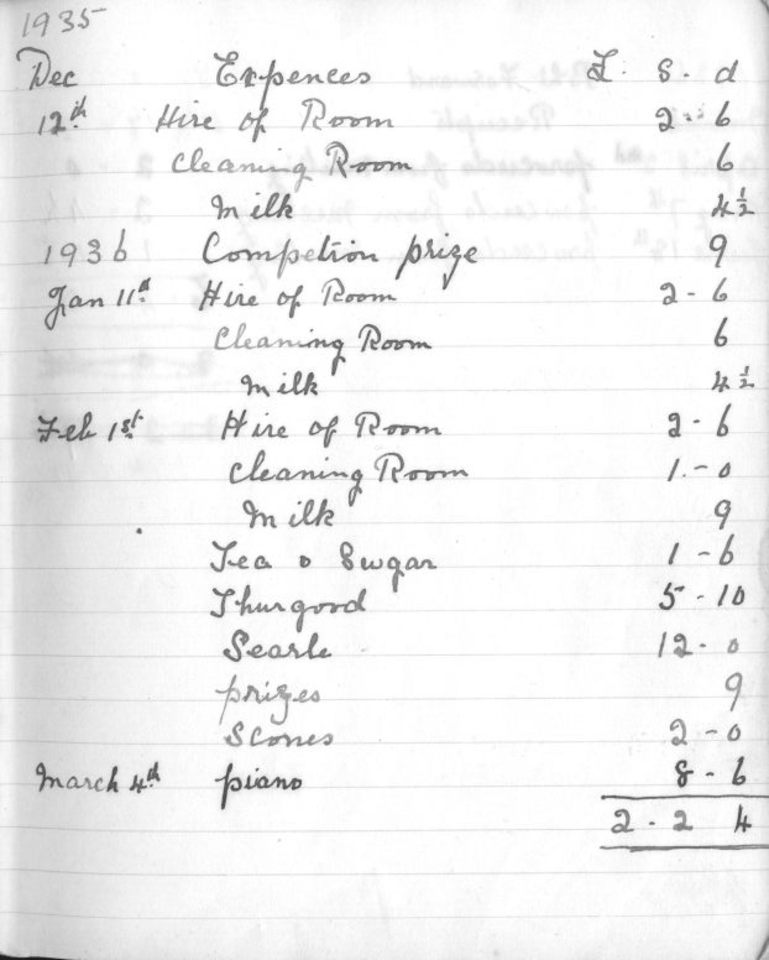 1935
Dec Expences £. S. d
12th Hire of Room 2-6
Cleaning Room 6
Milk 4½
1936 Competion prize 9
Jan 11th Hire of Room 2-6
Cleaning Room 6
Milk 4½
Feb 1st Hire of Room 2-6
Cleaning Room 1-0
Milk 9
Tea & Swgar 1-6
Thurgood 5-10
Searle 12-0
prizes 9
Scones 2-0
March 4th piano 8-6
2-2 4